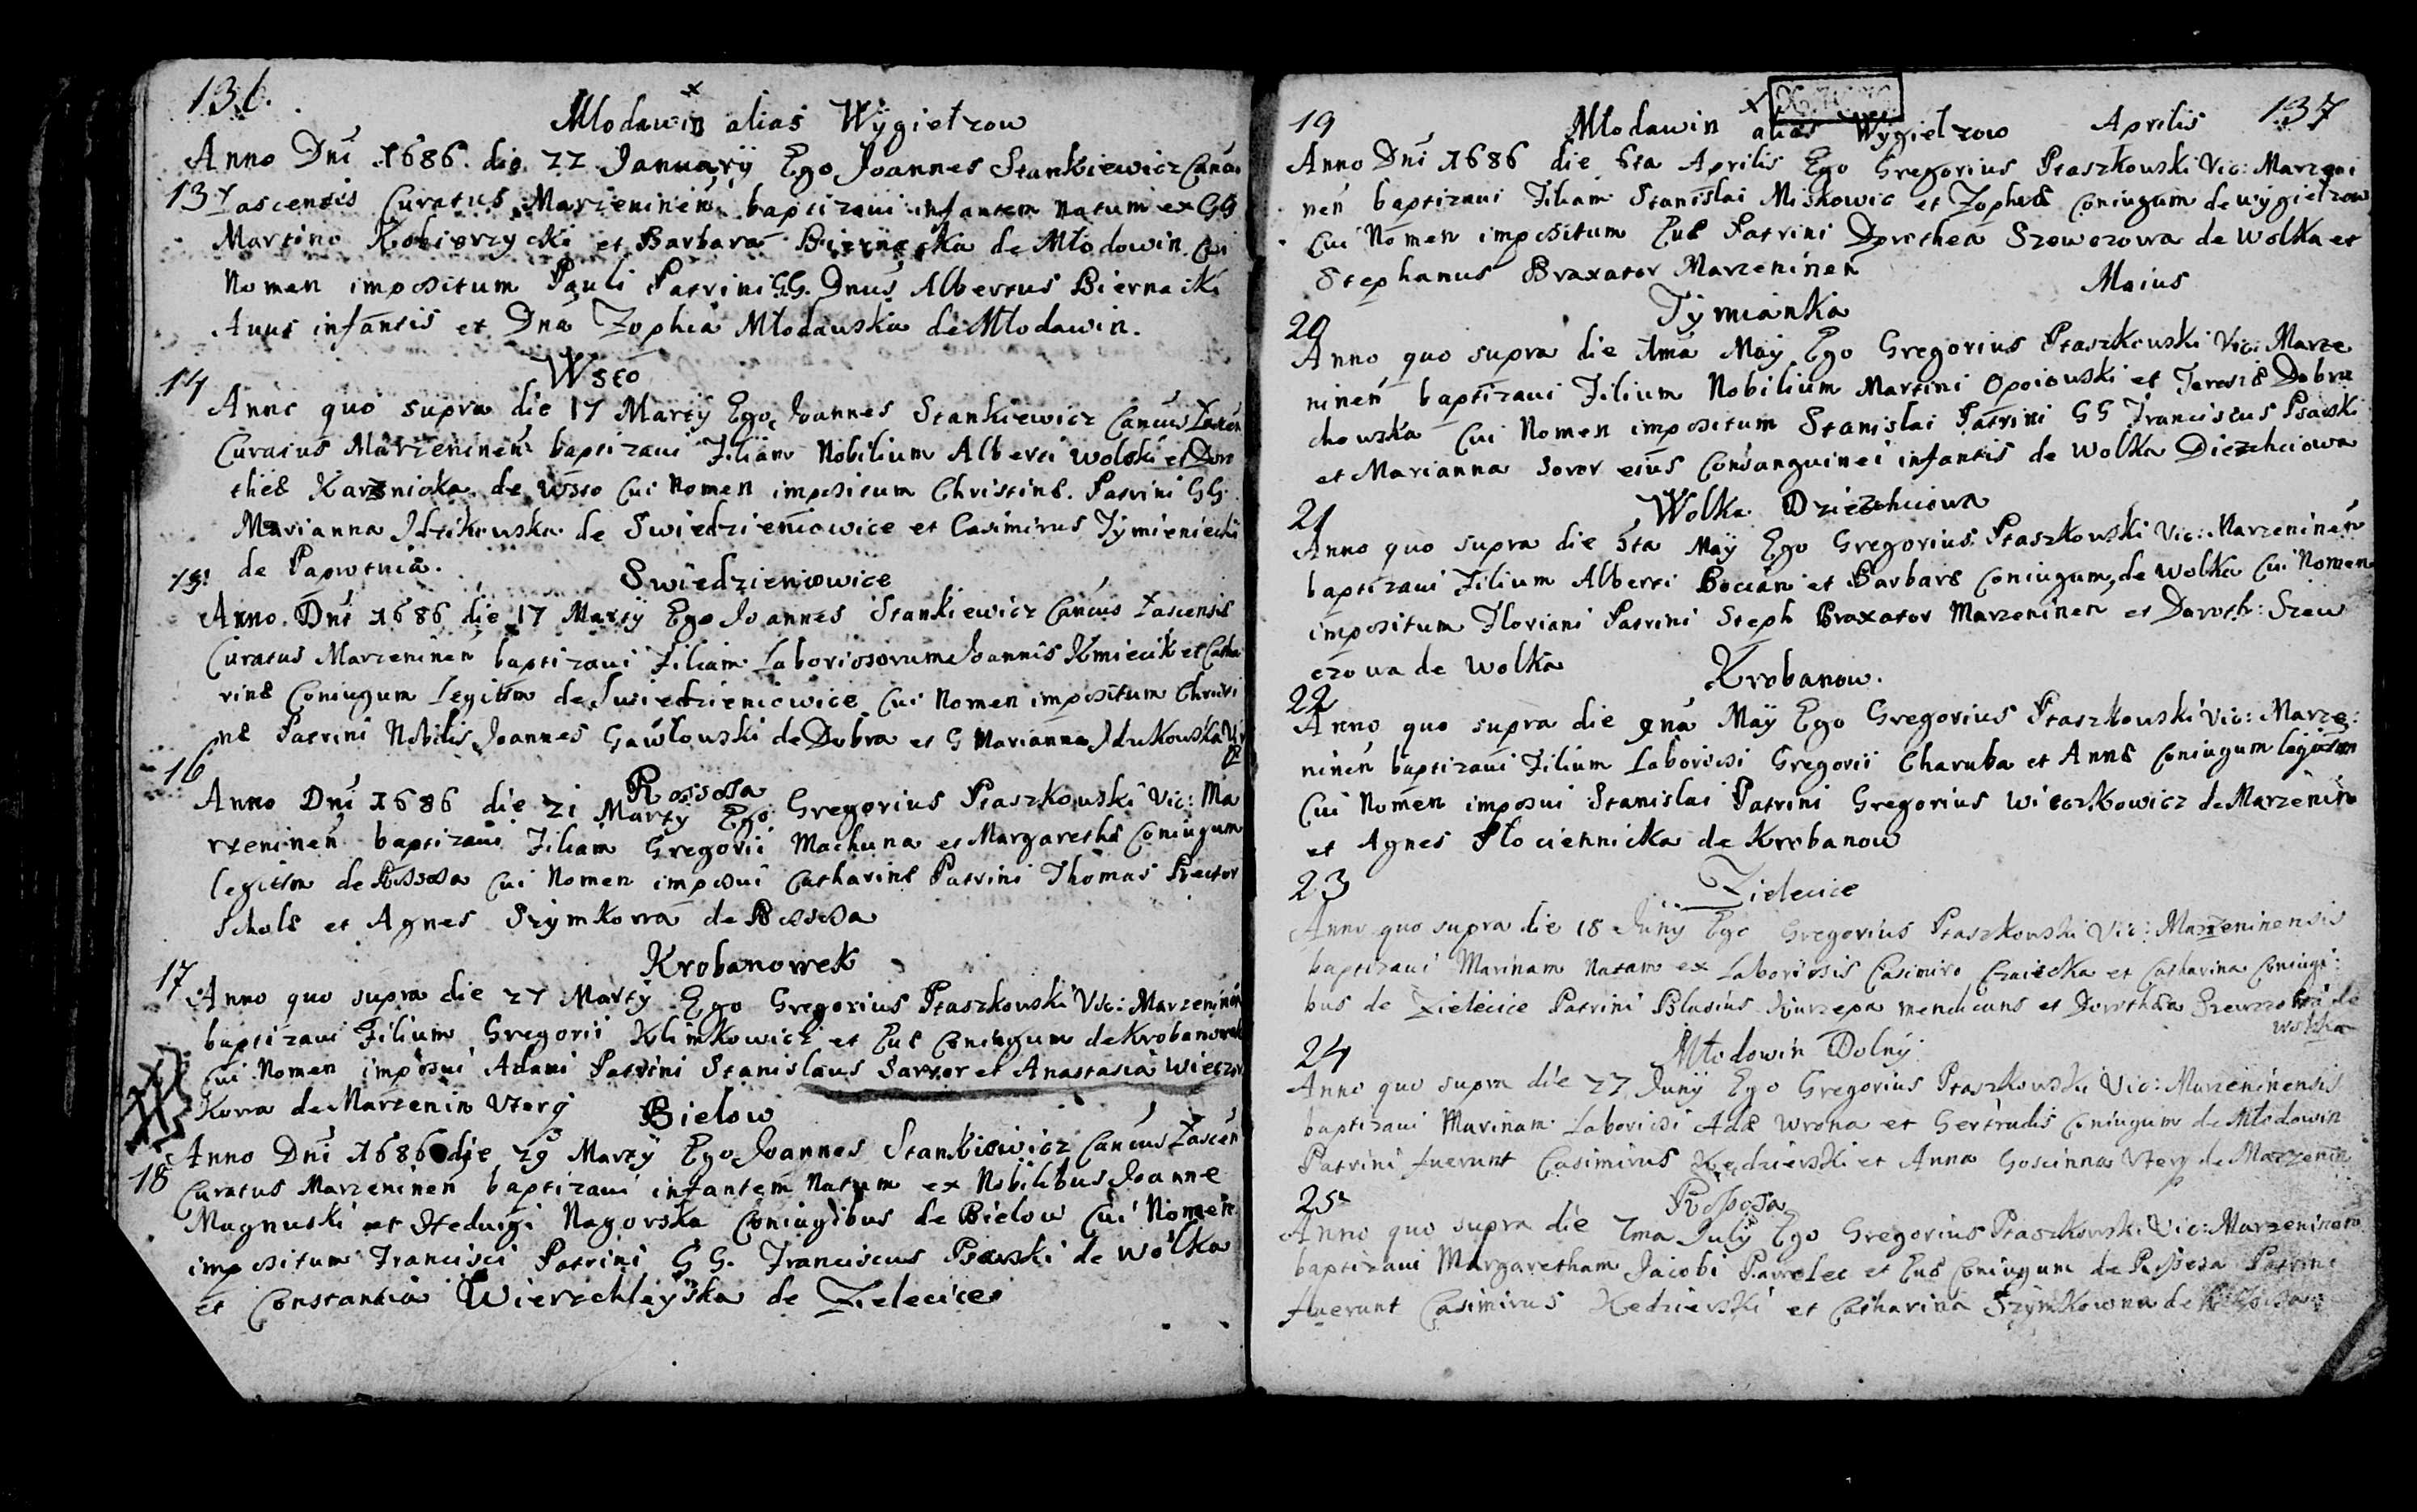 136.
Mlodawin alias Wygietrow
Anno Dni 1686. die 22 January Ego Joannes Stankiewicz Canō
13 Lascensis Curatus Marzeninen baptizaui infantem natum ex GG
Martino Kobierzycki et Barbara Biernacka de Młodowin. Cui
Nomen impositum Pauli Patrini GG. Dnus Albertus Biernacki
Auus infantis et Dna Zophia Młodawska de Młodawin.
Wsto
14
Anno quo supra die 17 Marty Ego Joannes Stankiewicz Cancus Lascen
Curatus Marzeninen baptizaui Filiam Nobilium Alberti Wolski et Doro
theæ Karsnicka de Wsto Cui Nomen impositum Christinæ. Patrini GG.
Marianna Idzikowska de Swiedzieniowice et Casimirus Tymieniecki
de Paprotnia.
15 Swiedzieniowice
Anno Dni 1686 die 17 Marty Ego Joannes Stankiewicz Cancus Lascensis
Curatus Marzeninen baptizaui Filiam Laboriosorum Joannis Kmiecik et Catha
rinæ Coniugum Legitim de Swiedzieniowice Cui Nomen impositum Christi
næ Patrini Nobilis Joannes Gawłowski de Dobra et G Marianna
16
Rossosa
Anno Dni 1686 die 21 Marty Ego Gregorius Ptaszkowski Vic: Ma
rzeninen baptizaui Filiam Gregorii Machuna et Margarethæ Coniugum
legitim de Rossosa Cui Nomen imposui Catharinæ Patrini Thomas Rector
Scholæ et Agnes Szymkowa de Rossosa
Krobanowek
17
Anno quo supra die 27 Marty Ego Gregorius Ptaszkowski Vic: Marzeninen
baptizaui Filium Gregorii Klimkowicz et Euæ Coniugum de Krobanowek
Cui Nomen imposui Adami Patrini Stanislaus Sartor et Anastasia Wieczor
kowa de Marzenin Uterq
Bielow
Anno Dni 1686 die 29 Marty Ego Joannes Stankiewicz Cancus Lascen
18 Curatus Marzeninen baptizaui infantem Natum ex Nobilibus Joanne
Magnuski et Hedwigi Nagorska Coniugibus de Bielow Cui Nomen
impositum Francisci Patrini GG. Franciscus Psarski de Wolka
et Constantia Wierzchleyska de Zielecice
137
19 Młodawin alias Wygietrow Aprilis
Anno Dni 1686 die 6ta Aprilis Ego Gregorius Ptaszkowski Vic: Marzeni
nen baptizaui Filiam Stanislai Miskowic et Zophiæ Coniugum de Wygietrow
Cui Nomen impositum Euæ Patrini Dorothea Szewczowa de Wolka et
Stephanus Braxator Marzeninen
Maius
Tymianka
20
Anno quo supra die 1ma May Ego Gregorius Ptaszkowski Vic: Marze
ninen baptizaui Filium Nobilium Martini Opoiowski et Teresiæ Dobru
chowska Cui Nomen impositum Stanislai Patrini GG Franciscus Psarski
et Marianna Soror eius Consanguinei infantis de Wolka Dziechciowa
21 Wolka Dziechciowa
Anno quo supra die 5ta May Ego Gregorius Ptaszkowski Vic: Marzeninen
baptizaui Filium Alberti Bocian et Barbaræ Coniugum, de Wolka Cui Nomen
impositum Floriani Patrini Steph Braxator Marzeninen et Doroth: Szew
czowa de Wolka
Krobanow.
22
Anno quo supra die 9na May Ego Gregorius Ptaszkowski Vic: Marze:
ninen baptizaui Filium Laboriosi Gregorii Charuba et Annæ Coniugum legitim
Cui Nomen imposui Stanislai Patrini Gregorius Wieczkowicz de Marzenin
et Agnes Płociennicka de Krobanow
23
Zielecice
Anno quo supra die 18 Juny Ego Gregorius Ptaszkowski Vic: Marzeninensis
baptizaui Marinam Natam ex Laboriosis Casimiro Czaiecka et Catharina Coniugi:
bus de Zielecice Patrini Blasius Kurzepa mendicans et Dorothea Szewczowa de
Wolka
24 Młodowin Dolny
Anno quo supra die 27 Juny Ego Gregorius Ptaszkowski Vic: Marzeninensis
baptizaui Marinam Laboriosi Adæ Wrona et Gertrudis Coniugum de Młodowin
Patrini fuerunt Casimirus Kędzierski et Anna Goscinna Uterq de Marzenin
25 Rossosa
Anno quo supra die 7ma July Ego Gregorius Ptaszkowski Vic: Marzeninen
baptizaui Margaretham Jacobi Pawelec et Euæ Coniugum de Rossosa Patrini
fuerunt Casimirus Kedzierski et Catharina Szymkowna de Rossosa